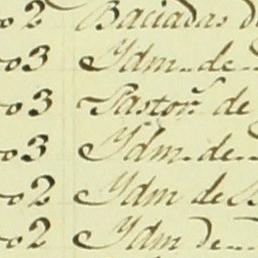 o2 Baciadas d
o3 Idm. de
o3 Pastor.^ de
o3 Idm. de
o2 Idm de B
o2 Idm de